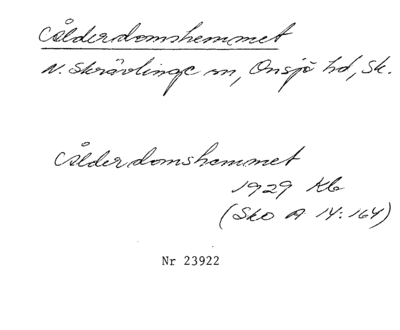 Ålderdomshemmet
N. Skrävlinge sn, Onsjö hd, Sk.
Ålderdomshemmet
1929 Kb
(Sko A 14:164)
Nr 23922